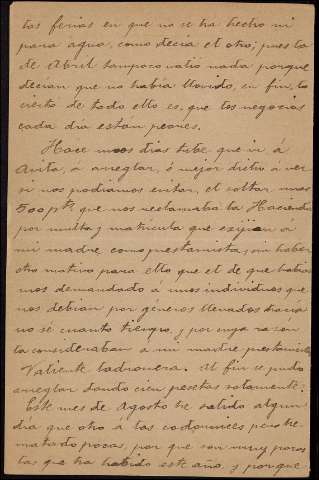 tas ferias en que no se ha hecho ni
para agua, como decía el otro; pues la
de Abril tampoco valió nada porque
decían que no había llovido, en fin, lo
cierto de todo ello es, que los negocios
cada dia están peores.
Hace unos dias tube que ir á
Avila, a arreglar, ó mejor dicho a ver
si nos podíamos evitar, el soltar unas
500 pts que nos reclamaba la Hacienda
por multa y matrícula que exijian á
mi madre como prestamista, sin haber
otro motivo para ello que el de que habia
mos demandado á unos individuos que
nos debian por géneros llevados hacía
no sé cuanto tiempo, y por cuya razon
la consideraban a mi madre prestamista
Valiente ladronera. Al fin se pudo
arreglar dando cien pesetas solamente.
Este mes de Agosto he salido algun
dia que otro á las codornices pero he
matado pocas, por que son muy pocas
las que ha habido este año, y porque